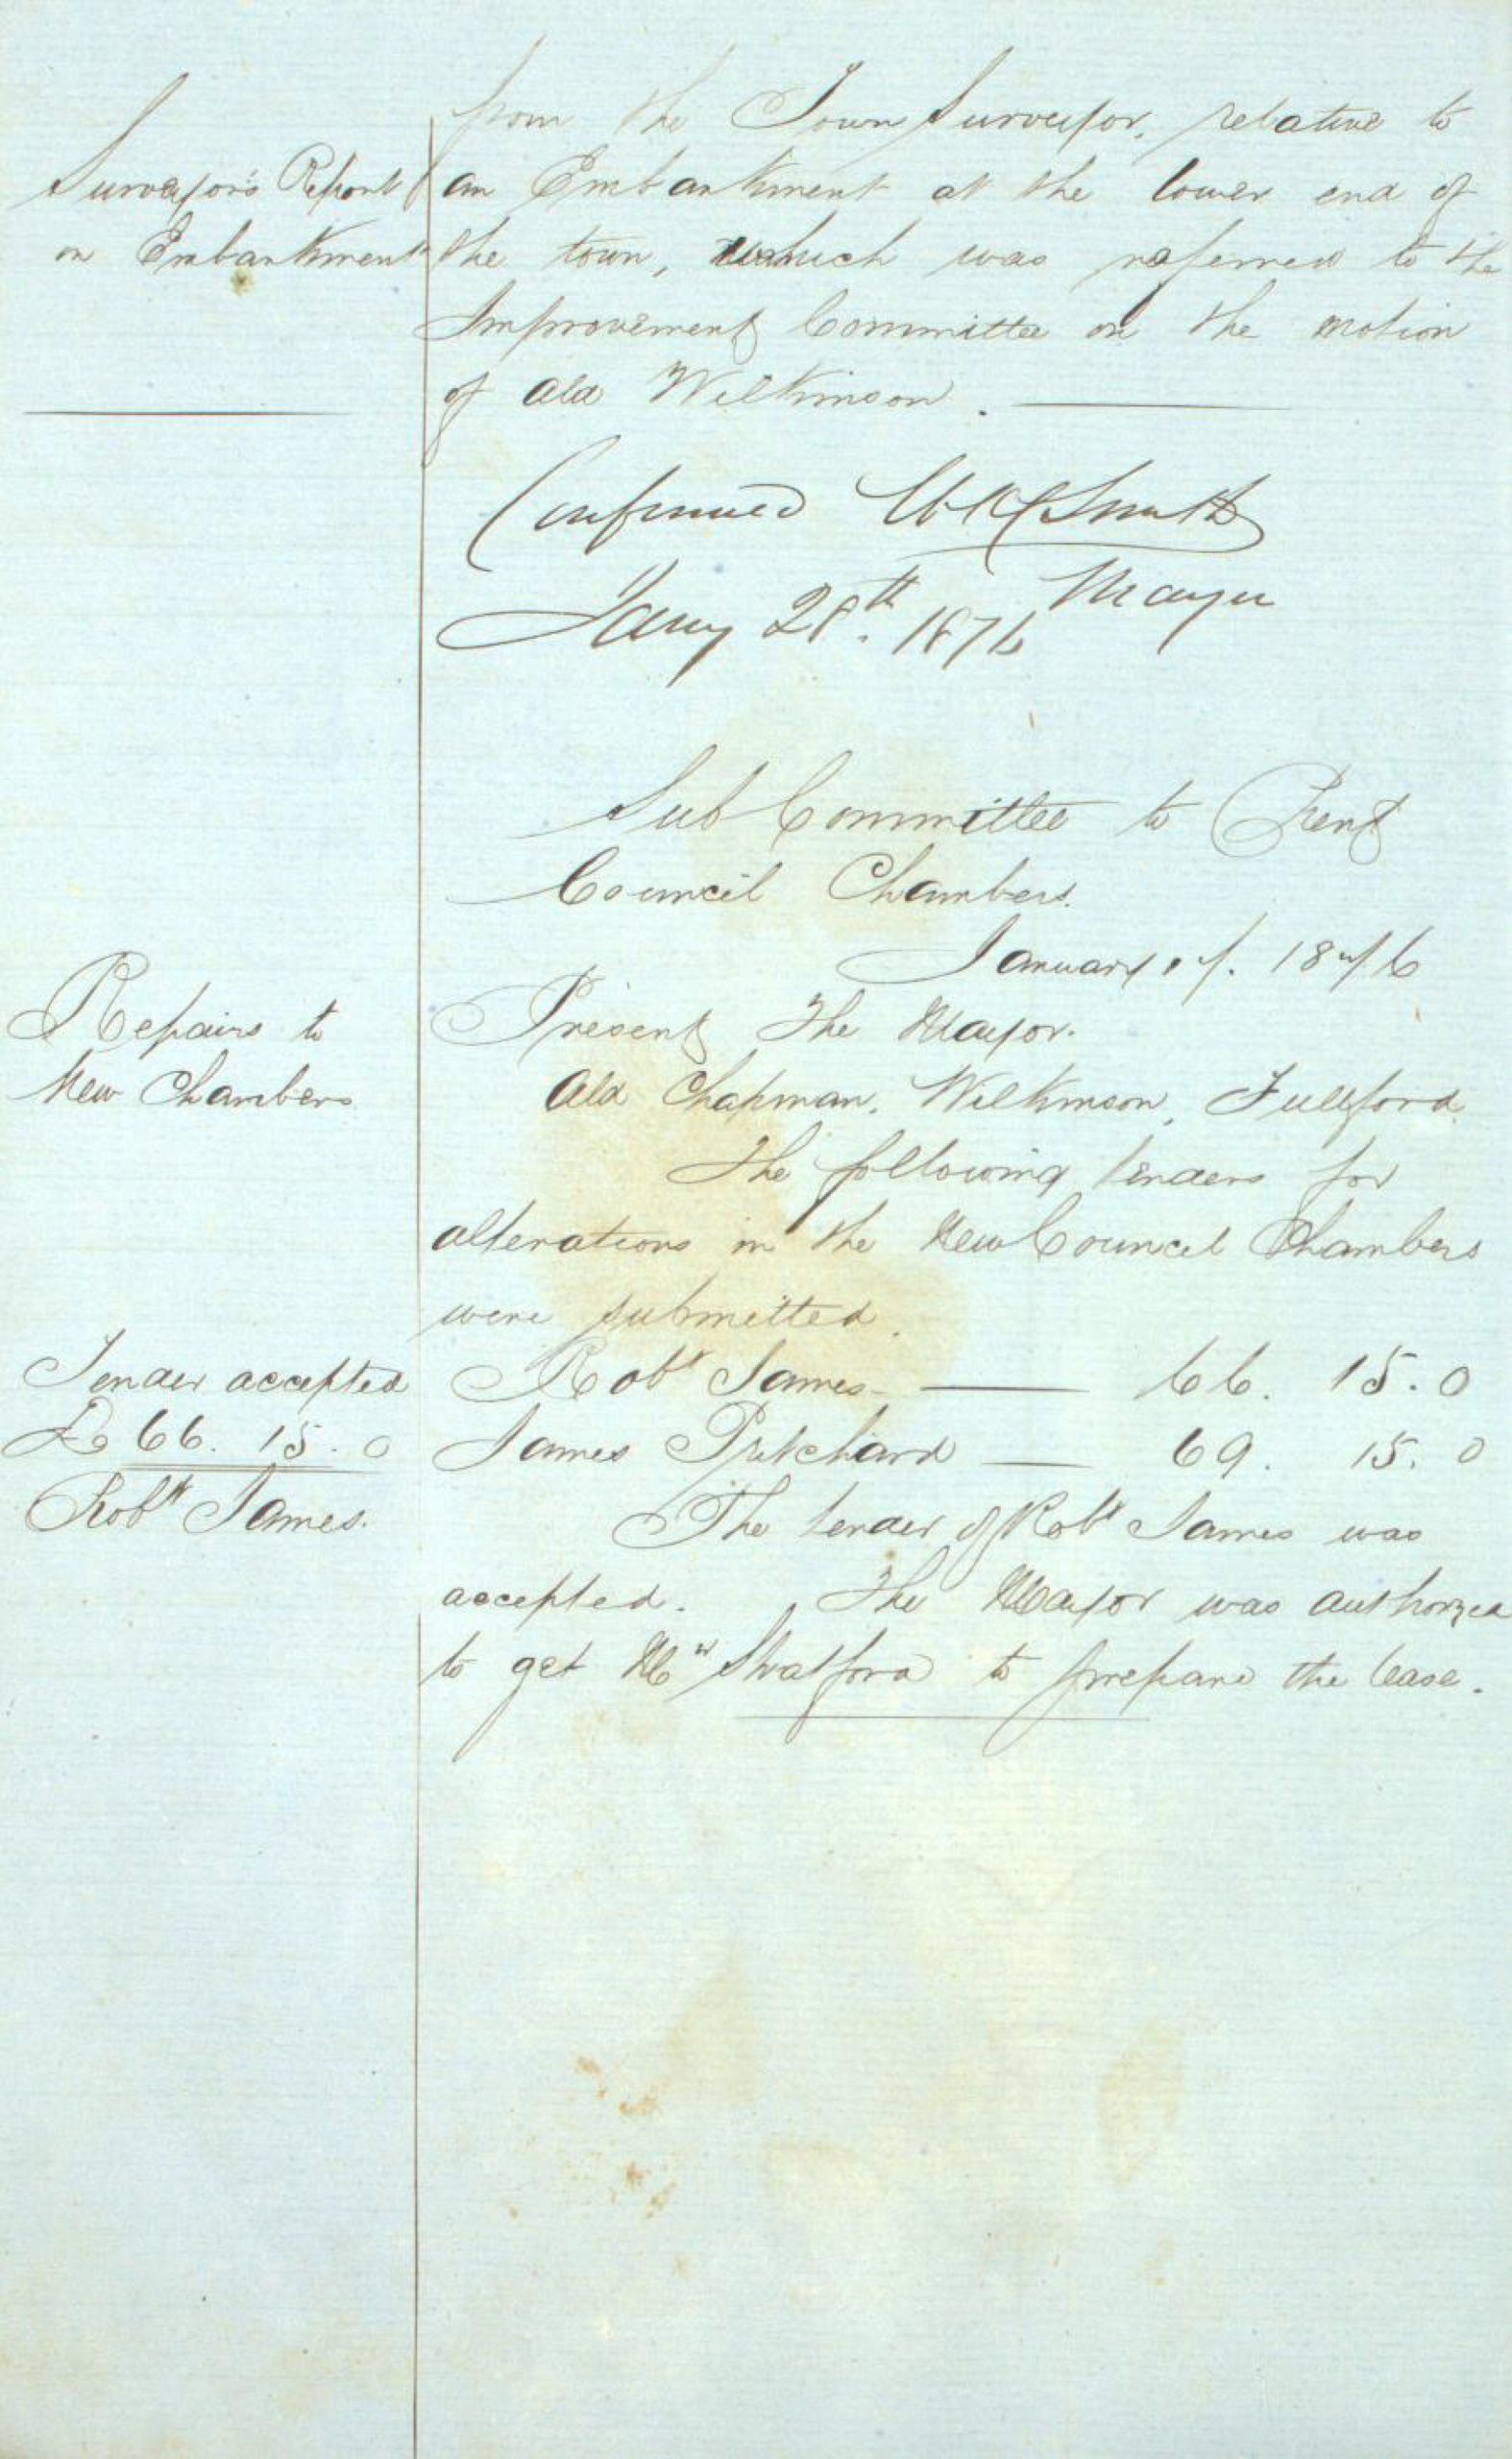 from the Town Surveyor, relative to
Surveyor's Report
an Embankment at the lower end of
on Embankment
the town, which was referred to the
Improvement Committee on the motion
of Ald Wilkinson.
Confirmed Smith
Mayor
Jany 28th. 1876
Sub Committee to Rent
Council Chambers.
January 1876
Repairs to
New Chambers
Present The Mayor.
Ald Chapman, Wilkinson, Fullford
The following tenders for
alterations in the New Council Chambers
were submitted.
Tender accepted
£66. 15. 0
Robt James.
Robt James — 66. 15. 0
James Pritchard — 69. 15. 0
The tender of Robt James was
accepted. The Mayor was authorized
to get Mr Shatford to prepare the lease.